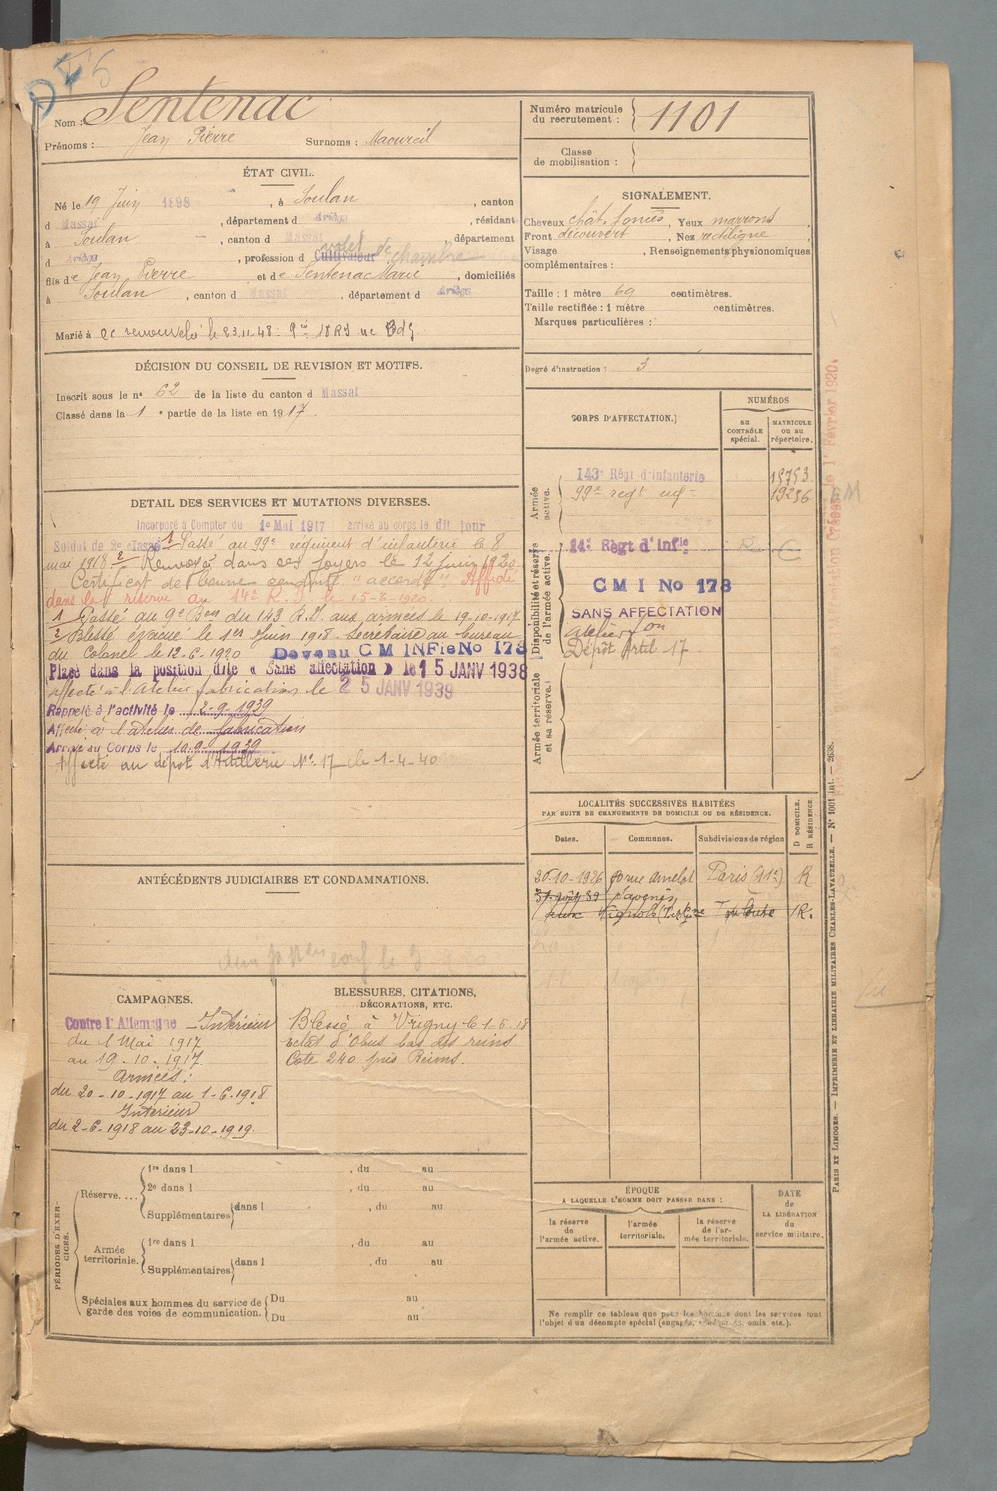 Nom : Sentenac
Prénoms : Jean Pierre Surnoms : Maoureil
Numéro matricule du recrutement : 1101
Classe de mobilisation :
ÉTAT CIVIL.
Né le 19 Juin 1898, à Soulan, canton
d Massat, département d Ariège, résidant
à Soulan, canton d Massat, département
d Ariège, profession d Cultivateur valet de chambre
fils de Jean Pierre et de Sentenac Marie, domiciliés
à Soulan, canton d Massat, département d Ariège
Marié à cc renouvelé le 23.11.48
SIGNALEMENT.
Cheveux chât. foncés, Yeux marrons
Front découvert, Nez rectiligne,
Visage , Renseignements physionomiques
complémentaires :
Taille : 1 mètre 69 centimètres.
Taille rectifiée : 1 mètre centimètres.
Marques particulières :
Degré d'instruction : 3
DÉCISION DU CONSEIL DE REVISION ET MOTIFS.
Inscrit sous le n° 62 de la liste du canton d Massat
Classé dans la 1e partie de la liste en 1917.
DETAIL DES SERVICES ET MUTATIONS DIVERSES.
Incorporé à Compter du 1e Mai 1917 arrivé au corps le dit jour
Soldat de 2e classe 1 Passé au 99e régiment d'infanterie le 8
mai 1918 2 Renvoyé dans ses foyers le 12 Juin 1920
Certificat de bonne conduite "accordé" Affecté
dans la réserve au 14e R.I. le 15-6-1920.
1 Passé au 9e Bon du 143 R.I. aux armées le 19-10-1917
2 Blessé évacué le 1er Juin 1918 - Secrétaire au bureau
du Colonel le 12-6-1920 Devenu CM INFie No 178
Placé dans la position dite « Sans affectation » le 15 JANV 1938
affecté à l'Atelier fabrication le 25 JANV 1939
Rappelé à l'activité le 2-9-1939
Affecté à l'atelier de fabrication
Arrivé au Corps le 10.9.1939
Affecté au dépôt d'Artillerie N° 17 le 1-4-40
CORPS D'AFFECTATION.
NUMÉROS
au CONTRÔLE spécial.
MATRICULE ou au répertoire.
Armée active.
143e Régt d'infanterie 15753
99e regt inf 19236
Disponibilité et réserve de l'armée active.
14e Régt d'Infie
CMI No 178
SANS AFFECTATION
Atelier fon
Dépôt Artil 17
Armée territoriale et sa réserve.
LOCALITÉS SUCCESSIVES HABITÉES
PAR SUITE DE CHANGEMENTS DE DOMICILE OU DE RÉSIDENCE.
Dates. Communes. Subdivisions de région D DOMICILE. R RÉSIDENCE
20-10-1926 rue Amelot Paris (112) R
R.
ANTÉCÉDENTS JUDICIAIRES ET CONDAMNATIONS.
CAMPAGNES.
Contre l'Allemagne - Intérieur
du 1 Mai 1917
au 19-10-1917.
Armées :
du 20-10-1917 au 1-6-1918
Intérieur
du 2-6-1918 au 23-10-1919.
BLESSURES, CITATIONS,
DÉCORATIONS, ETC.
Blessé à Vrigny le 1-6-18
Eclat d'Obus bas des reins
Cote 240 près Reims.
PÉRIODES D'EXERCICES.
Réserve....
1re dans l , du au
2e dans l , du au
Supplémentaires dans l , du au
Armée territoriale.
1re dans l , du au
Supplémentaires dans l , du au
Spéciales aux hommes du service de garde des voies de communication.
Du au
Du au
ÉPOQUE
A LAQUELLE L'HOMME DOIT PASSER DANS :
la réserve de l'armée active.
l'armée territoriale.
la réserve de l'armée territoriale.
DATE de LA LIBÉRATION du service militaire.
Ne remplir ce tableau que pour les hommes dont les services font
l'objet d'un décompte spécial (engagés, omis, etc.).
PARIS ET LIMOGES. — IMPRIMERIE ET LIBRAIRIE MILITAIRES CHARLES-LAVAUZELLE. — N° 1001 int. — 2638.